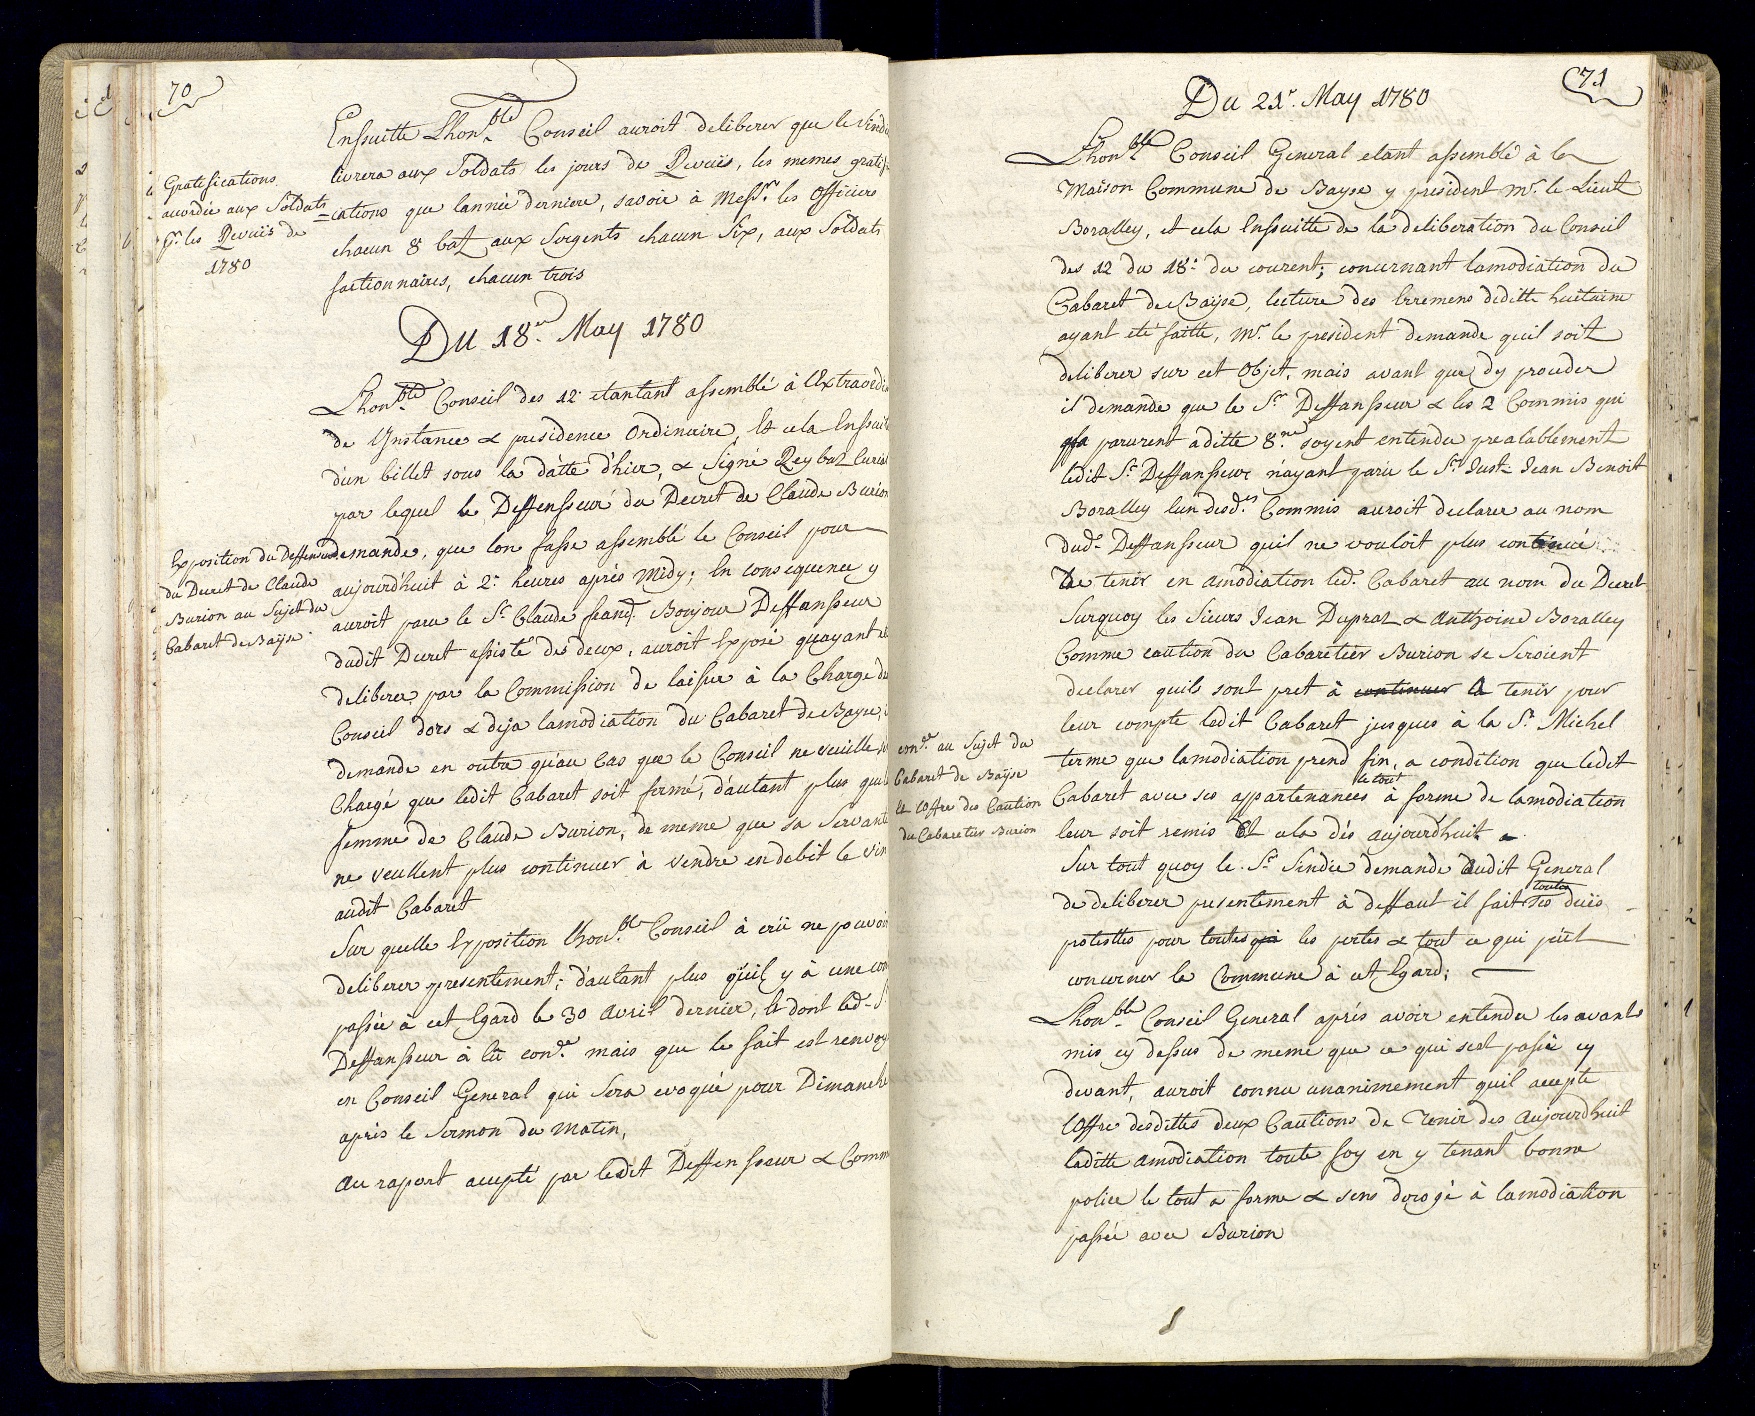 70
Gratifications
acordée aux Soldats
pr. les Revuës de
1780
Ensuitte Lhonble Conseil auroit deliberer que le Sindi
livrera aux Soldats les jours de Revuës, les memes gratif
=ications que lannée derniere, savoir à Messrs. les Officiers
chacun 8 batz aux Sergents chacun Six, aux Soldats
factionnaires, chacun trois
Du 18e. May 1780
Lhonble Conseil des 12 etantant assemblé à l'Extraordi
de l'Instance & presidence Ordinaire, Et cela Ensuit
d'un billet sous la datte d'hier, & Signé Reybaz Curial
par lequel le Deffensseur du Decret de Claude Burion
demande, que lon fasse assemblé le Conseil pour
aujourdhuit à 2. heures après Midy; En consequence y
auroit paru le Sr. Claude frand. Boujour Deffansseur
dudit Decret assisté des deux, auroit Exposé quayant eté
deliberer par la Commission de laisser à la Charge du
Conseil dors & deja lamodiation du Cabaret de Bayse,
demande en outre qu'au Cas que le Conseil ne veuille
Chargé que ledit Cabaret soit fermé, d'autant plus que la
femme de Claude Burion, de meme que sa Servante
ne veullent plus continuer à vendre en debit le vin
audit Cabaret
Exposition du Deffenseur
du Decret de Claude
Burion au Sujet du
Cabaret de Bayse.
Sur quelle Exposition Lhonble Conseil à crü ne pouvoir
deliberer presentement; d'autant plus qu'il y à une con
passée à cet Egard le 30 Avril dernier, Et dont led. S.
Deffansseur à lu conce. mais que le fait est renvoyé
en Conseil General qui sera evoqué pour Dimanche
après le Sermon du Matin,
au raport accepté par ledit Deffensseur & Comm
71
Du 21e. May 1780
Lhonble Conseil General etant assemblé à la
Maison Commune de Bayse y president mr. le Lieut
Boralley, et cela Ensuitte de la deliberation du Conseil
des 12 du 18e du courent; concernant lamodiation du
Cabaret de Bayse, lecture des Erremens deditte huitaine
ayant eté faitte, Mr. le president demande quil soit
deliberer sur cet Objet, mais avant que d'y proceder
il demande que le Sr. Deffansseur & les 2 Commis qui
parurent aditte 8ne soyent entendu prealablement
ledit Sr. Deffansseur n'ayant paru le Sr. Just Jean Benoit
Boralley lun desd. Commis auroit declarer au nom
dud. Deffansseur quil ne vouloit plus continué
de tenir en amodiation led. Cabaret au nom du Decret
Surquoy les Sieurs Jean Dupraz & Anthoine Boralley
Comme caution du Cabaretier Burion se Seroient
declarer quils sont pret à continuer à tenir pour
leur compte ledit Cabaret jusques à la St. Michel
terme que lamodiation prend fin, a condition que ledit
Cabaret avec ses appartenances le tout à forme de lamodiation
leur soit remis Et cela dès aujourdhuit
conce. au Sujet du
Cabaret de Bayse
Et l'Offre des Caution
du Cabaretier Burion
Sur tout quoy le Sr. Sindic demande audit General
de deliberer presentement à deffaut il fait toutes ses duës
protestes pour toutes les pertes & tout ce qui peut
concerner le Commune à cet Egard;
Lhonble Conseil General après avoir entendu les avants
mis cy dessus de meme que ce qui sest passée cy
devant, auroit connu unanimement quil accepte
l'Offre desdittes deux Cautions de Tenir des Aujourdhuit
laditte amodiation toute foy en y tenant bonne
police le tout a forme & sens derogé à lamodiation
passée avec Burion